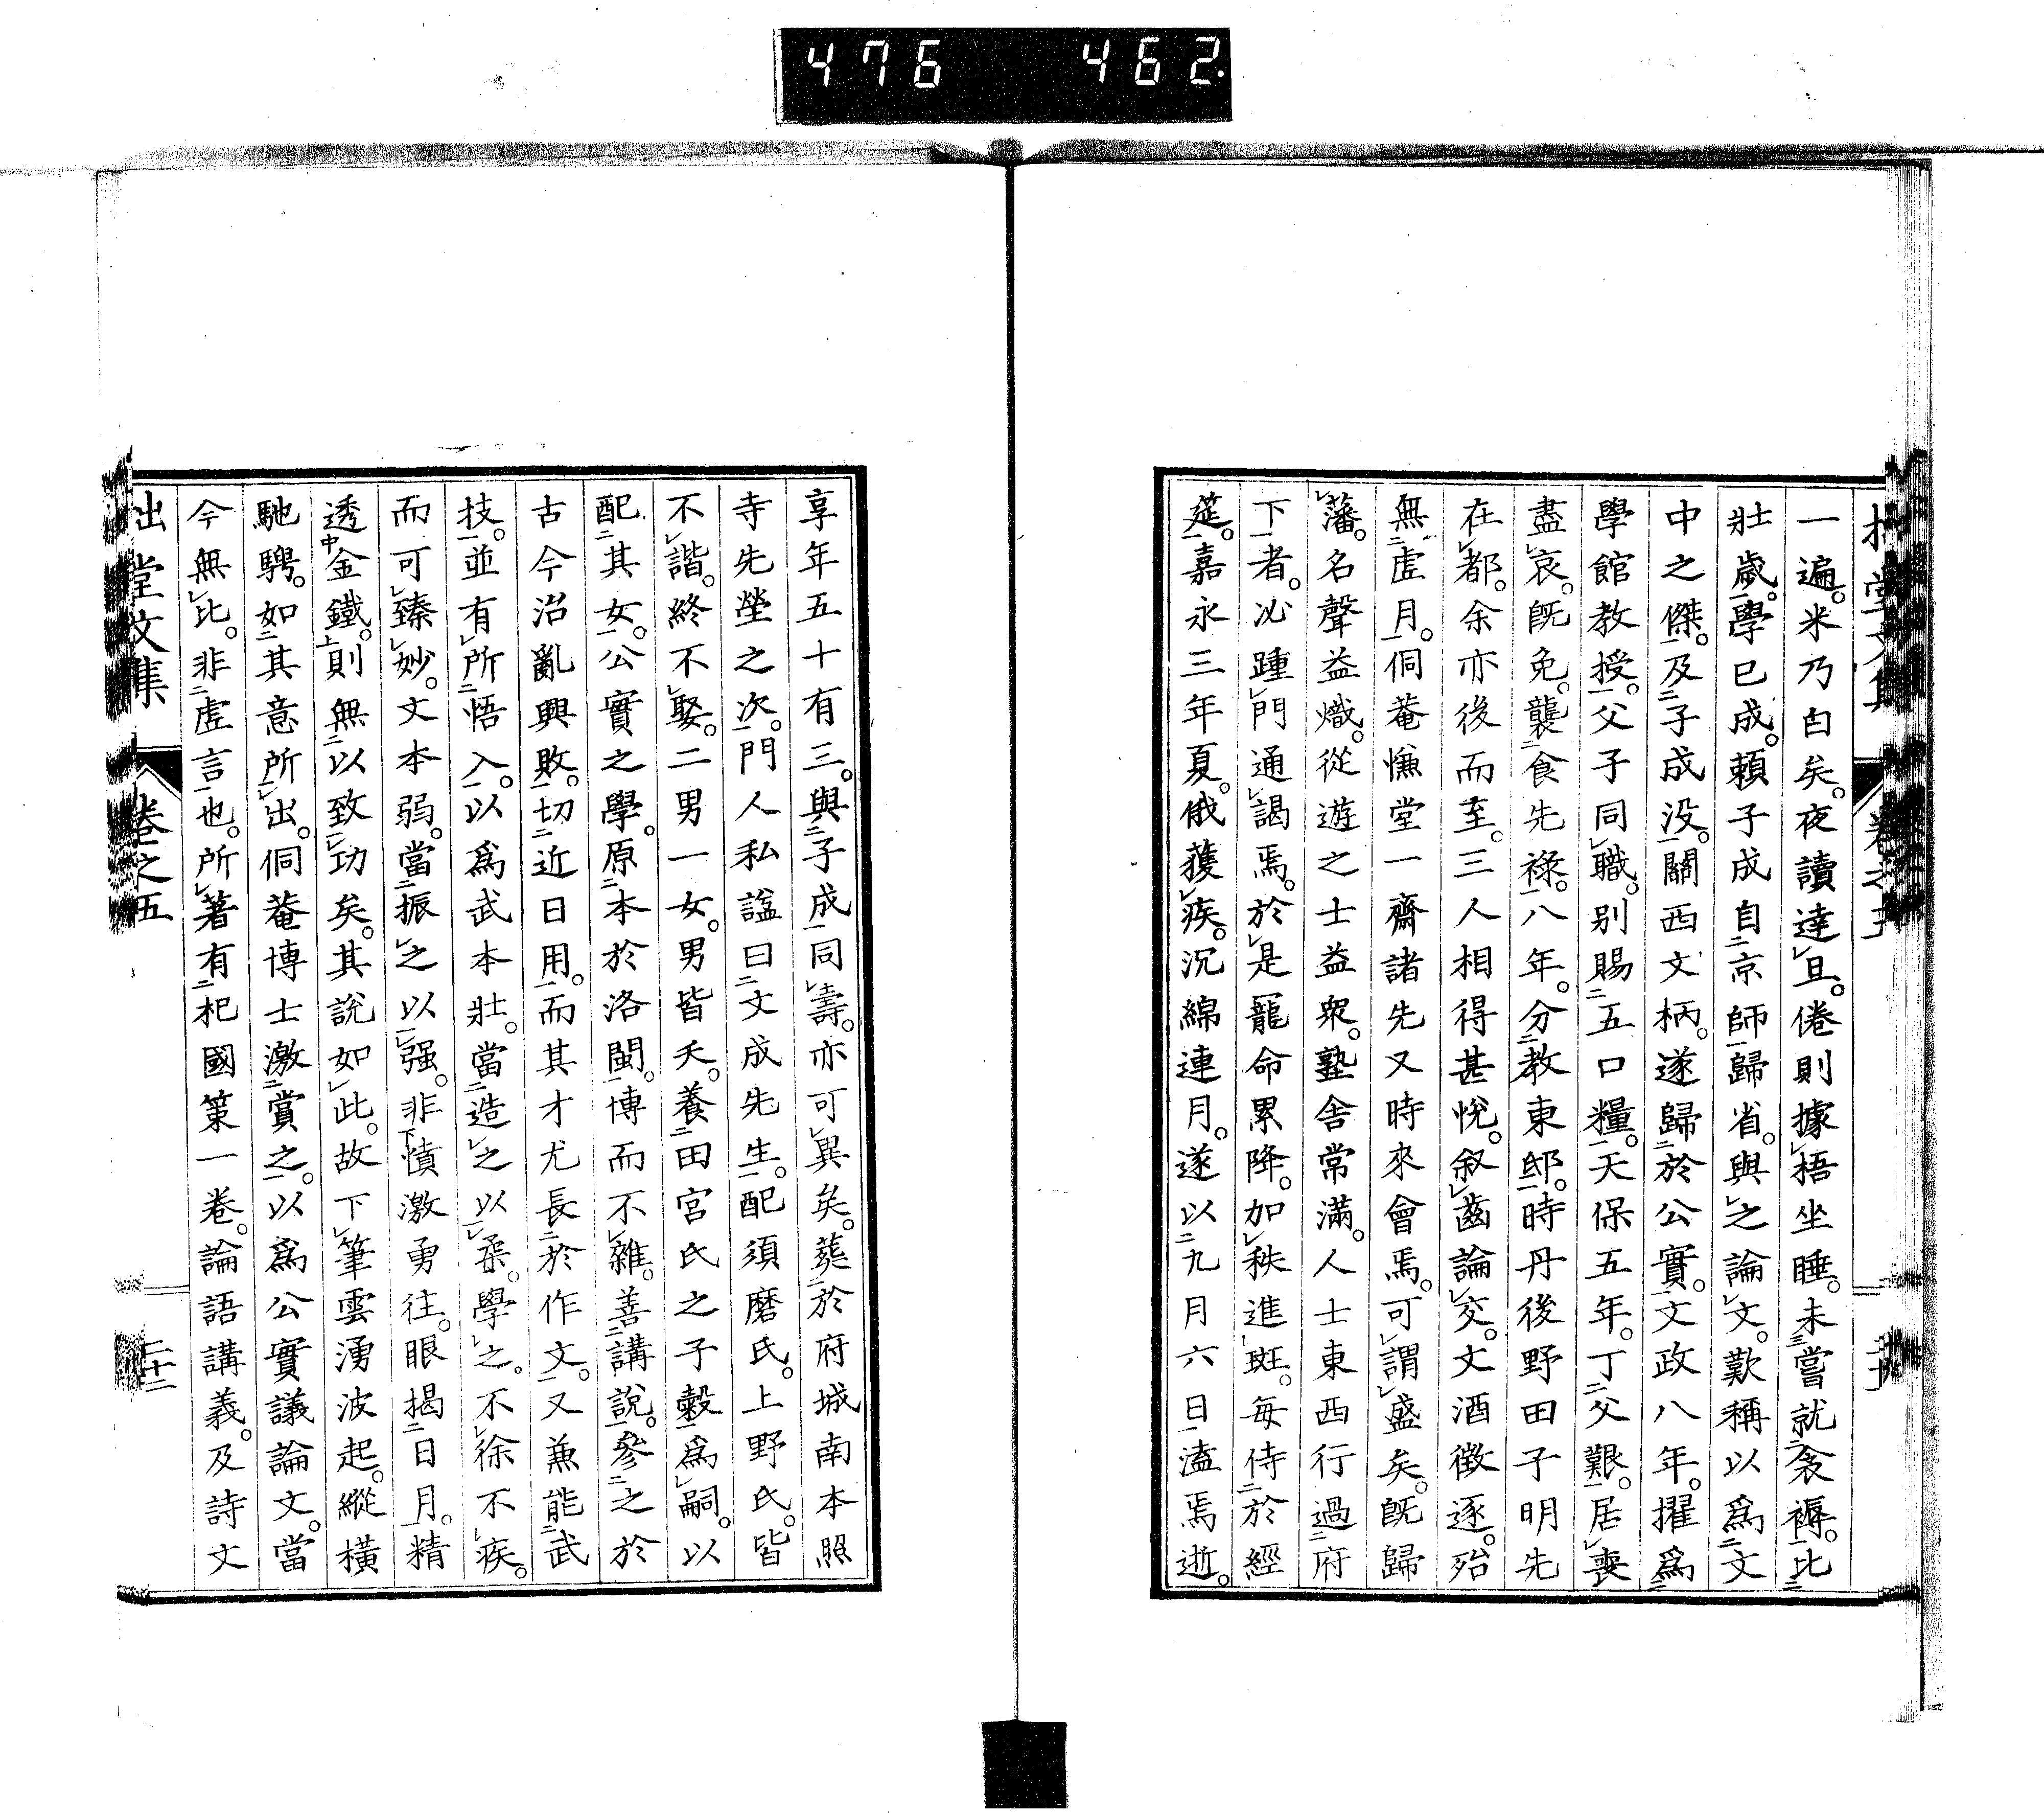 476 462
一遍。米乃白矣。夜讀達旦。倦則據梧坐睡。未嘗就衾褥。比
壯歲。學已成。賴子成自京師歸省。與之論文。歎稱以爲文
中之傑。及子成没。關西文柄。遂歸於公實。文政八年。擢爲
學館教授。父子同職。別賜五口糧。天保五年。丁父艱。居喪
盡哀。既免。襲食先祿。八年。分教東邸。時丹後野田子明先
在都。余亦後而至。三人相得甚悅。叙齒論交。文酒徵逐。殆
無虛月。侗菴慊堂一齋諸先又時來會焉。可謂盛矣。既歸
藩。名聲益熾。從遊之士益衆。塾舍常滿。人士東西行過府
下者。必踵門通謁焉。於是寵命累降。加秩進班。每侍於經
筵。嘉永三年夏。俄獲疾。沉綿連月。遂以九月六日溘焉逝。
享年五十有三。與子成同壽。亦可異矣。葬於府城南本照
寺先塋之次。門人私諡曰文成先生。配須磨氏。上野氏。皆
不諧。終不娶。二男一女。男皆夭。養田宮氏之子穀爲嗣。以
配其女。公實之學。原本於洛閩。博而不雜。善講說。參之於
古今治亂興敗。切近日用。而其才尤長於作文。又兼能武
技。並有所悟入。以爲武本壯。當造之以柔。學之。不徐不疾。
而可臻妙。文本弱。當振之以强。非憤激勇往。眼揭日月。精
透金鐵。則無以致功矣。其說如此。故下筆雲湧波起。縱橫
馳騁。如其意所出。侗菴博士激賞之。以爲公實議論文。當
今無比。非虛言也。所著有杞國策一卷。論語講義。及詩文
堂文集 卷之五 二十二